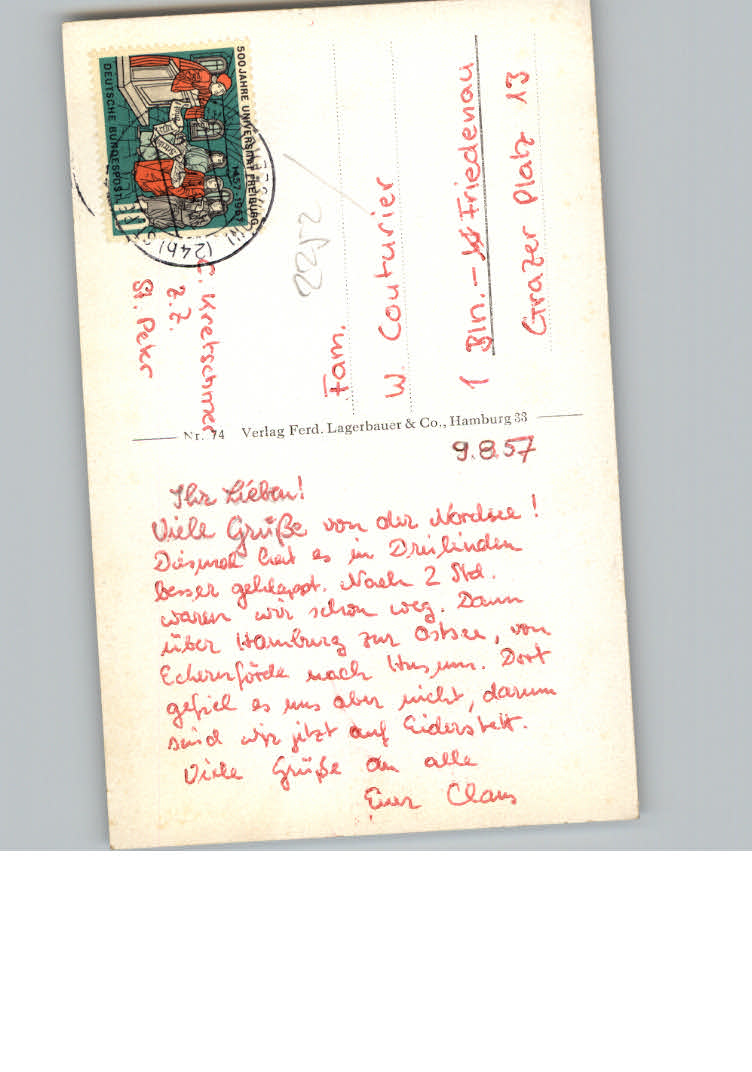 500 JAHRE UNIVERSITÄT FREIBURG
1457-1957
DEUTSCHE BUNDESPOST
10
(24b)
C. Kretschmer
z.Z.
St. Peter
Fam.
W. Couturier
1 Bln.-Friedenau
Grazer Platz 13
Nr. 74 Verlag Ferd. Lagerbauer & Co., Hamburg 33
9.8.57
Ihr Lieben!
Viele Grüße von der Nordsee!
Diesmal hat es in Dreilinden
besser geklappt. Nach 2 Std.
waren wir schon weg. Dann
über Hamburg zur Ostsee, von
Eckernförde nach Husum. Dort
gefiel es uns aber nicht, darum
sind wir jetzt auf Eiderstett.
Viele Grüße an alle
Euer Claus